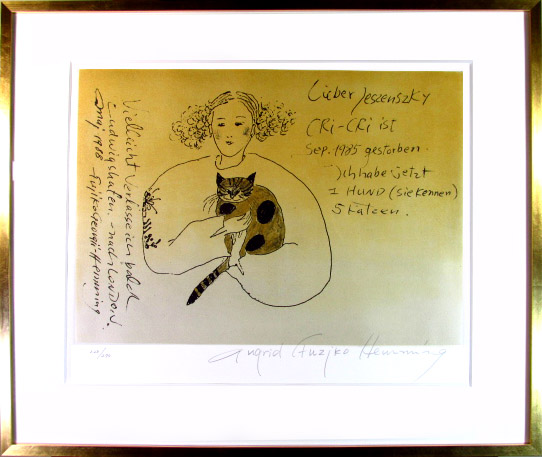 Lieber Jeszenszky
CRi-CRi ist
Sep. 1985 gestorben.
Ich habe jetzt
1 HUND (sie kennen)
5 Katzen.
Vielleicht verlasse ich bald
Ludwigshafen. - nach LONDON.
maj 1986 - Fujiko Georgii-Hemming
Ingrid Fuzjko Hemming